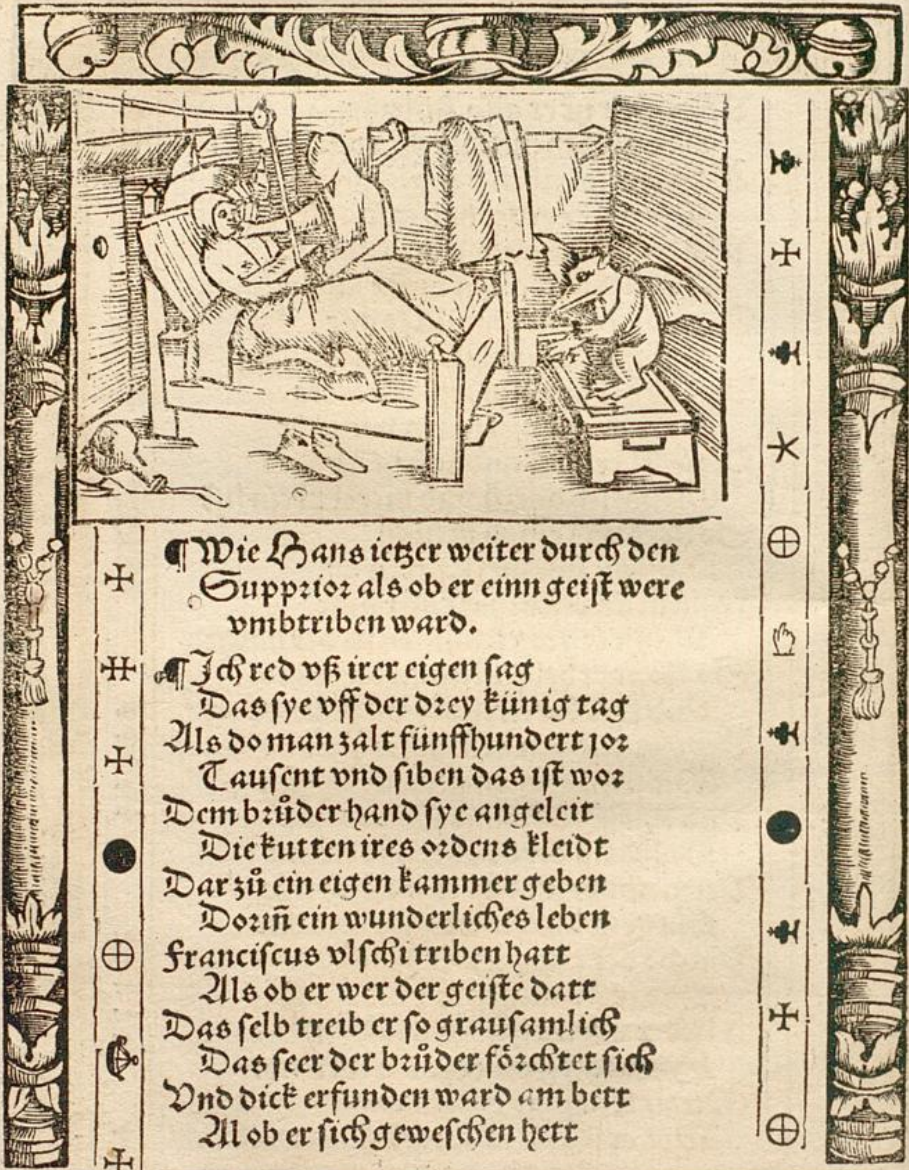 ¶Wie Hans ietzer weiter durch den
Suppꝛioꝛ als ob er einn geiſt were
vmbtriben ward.
¶Ich red vß irer eigen ſag
Das ſye vff der dꝛey künig tag
Als do man zalt fünffhundert joꝛ
Tauſent vnd ſiben das iſt woꝛ
Dem bꝛůder hand ſye angeleit
Die kutten ires oꝛdens kleidt
Dar zů ein eigen kammer geben
Doꝛiñ ein wunderliches leben
Franciſcus vlſchi triben hatt
Als ob er wer der geiſte datt
Das ſelb treib er ſo grauſamlich
Das ſeer der bꝛůder föꝛchtet ſich
Vnd dick erfunden ward am bett
Al ob er ſich geweſchen hett